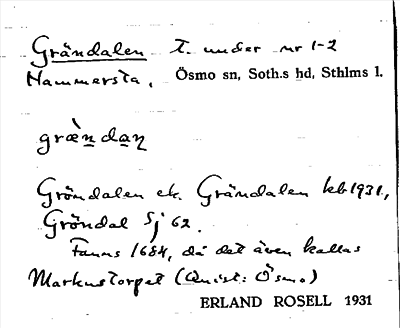 Grändalen t. under nr 1-2
Hammersta, Ösmo sn, Soth.s hd, Sthlms l.
græ̀ndaɳ
Gröndalen el. Grändalen kb 1931,
Gröndal Sj 62.
Fanns 1684, då det även kallas
Markustorpet (Quist: Ösmo)
ERLAND ROSELL 1931